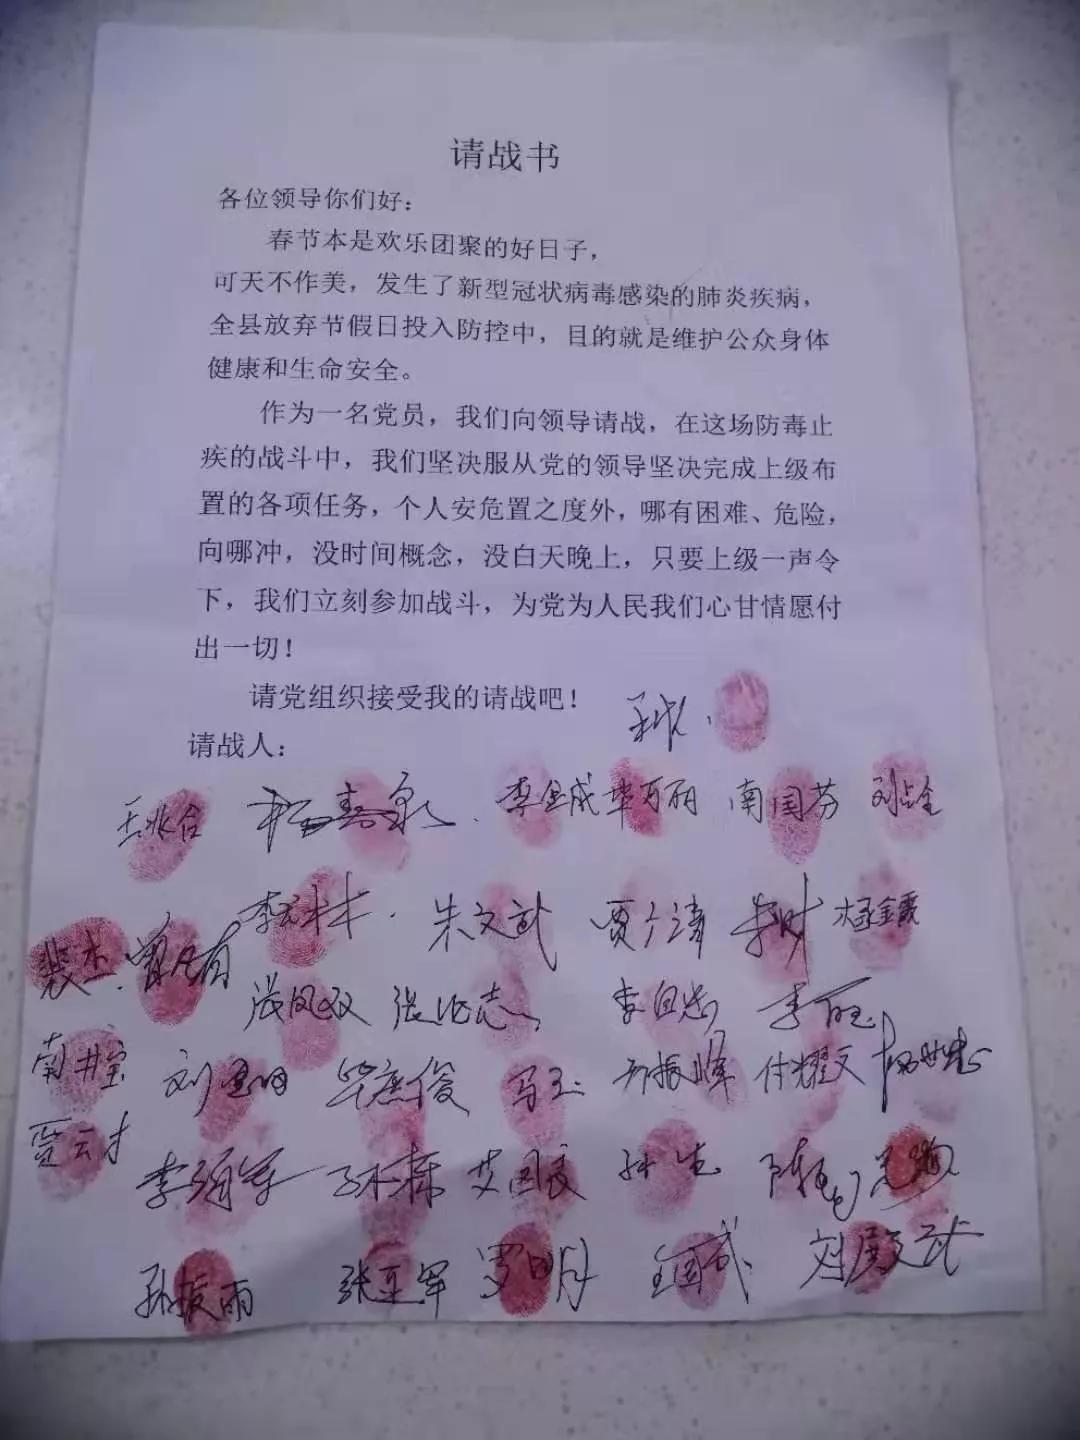 请战书
各位领导你们好：
春节本是欢乐团聚的好日子，
可天不作美，发生了新型冠状病毒感染的肺炎疾病，
全县放弃节假日投入防控中，目的就是维护公众身体
健康和生命安全。
作为一名党员，我们向领导请战，在这场防毒止
疾的战斗中，我们坚决服从党的领导坚决完成上级布
置的各项任务，个人安危置之度外，哪有困难、危险，
向哪冲，没时间概念，没白天晚上，只要上级一声令
下，我们立刻参加战斗，为党为人民我们心甘情愿付
出一切！
请党组织接受我的请战吧！
请战人：
王兆合 李金成 毕万丽 南国芬 刘占全
朱文武 贾广清
裴杰
张凤双 李自忠 李旺
南井宝 马玉 孙振峰 付耀文
贾云才
孙栋 艾国良
孙振雨 张亚军 罗明月 王国武 刘殿武